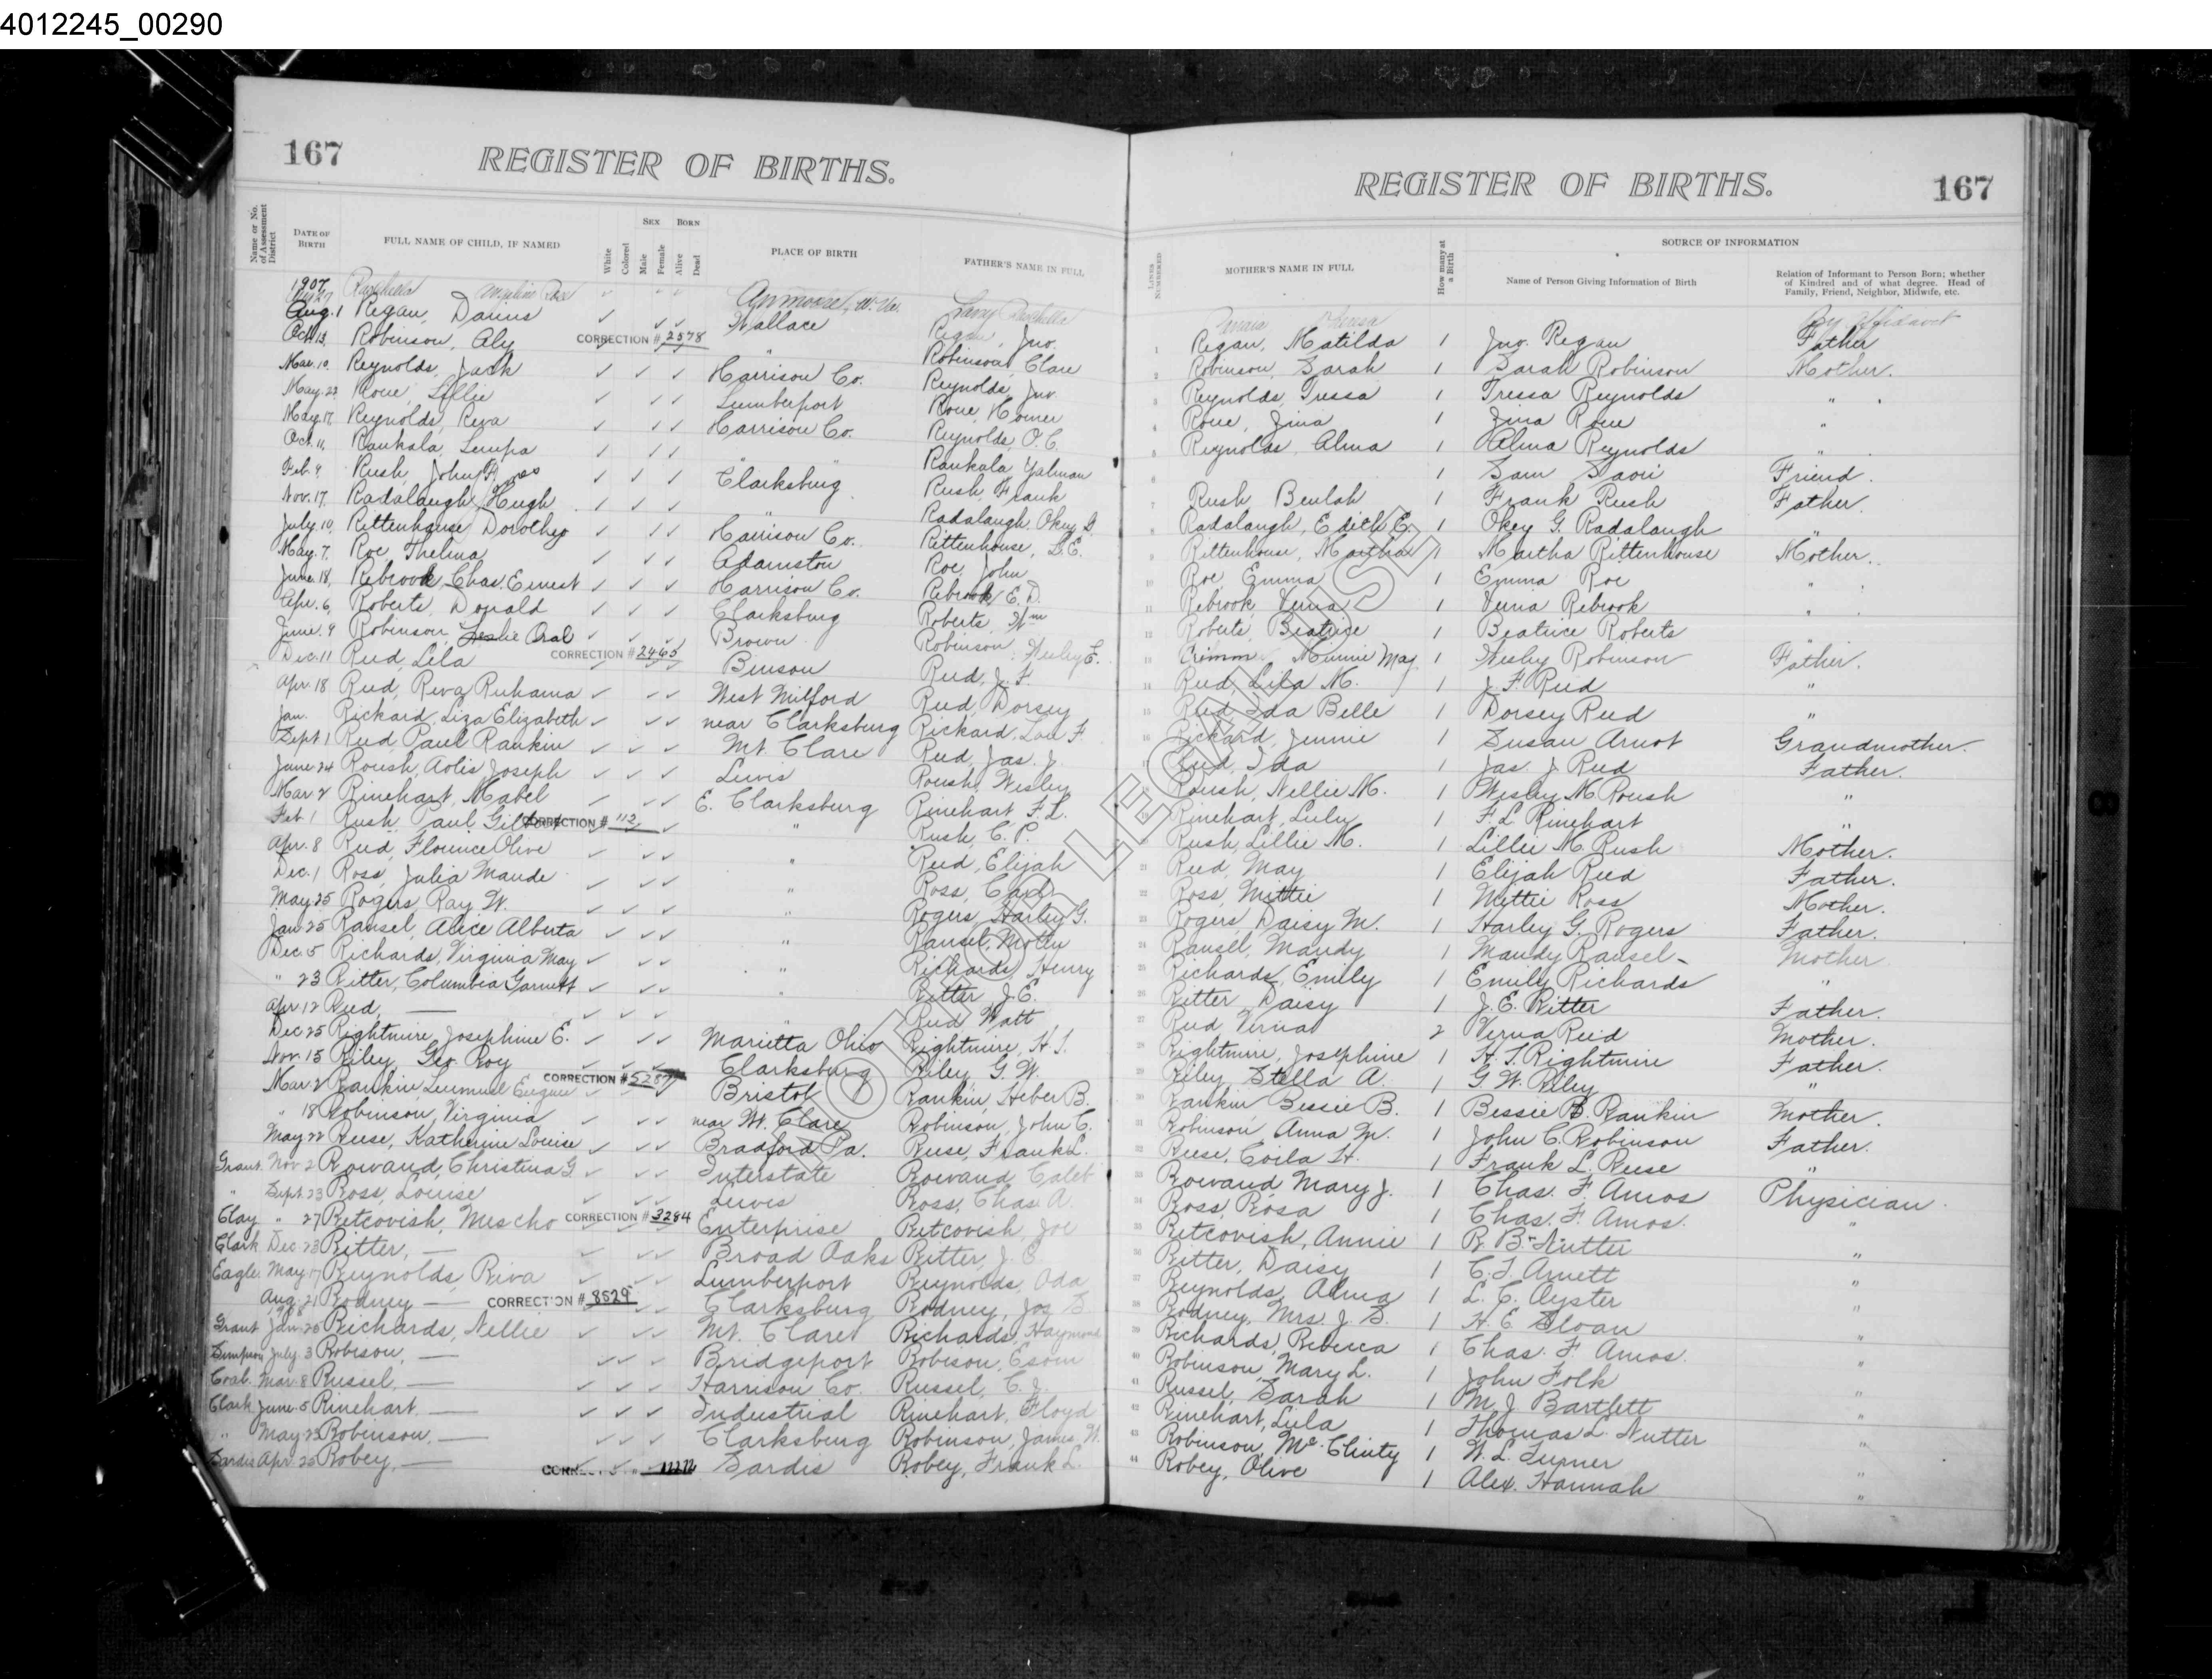 4012245_00290
167 REGISTER OF BIRTHS.
Name or No. of Assessment District
DATE OF BIRTH
FULL NAME OF CHILD, IF NAMED
White
Colored
SEX
Male
Female
BORN
Alive
Dead
PLACE OF BIRTH
FATHER'S NAME IN FULL
1907
Aug. 1 Regan, Wallace
Oct. 13, Robinson, Aly CORRECTION # 2578 " Regan, Jno.
Mar. 10. Reynolds, Jack Harrison Co. Robinson, Clare
May. 22 Rowe, Lillie Lumberport Reynolds, Jno.
May. 17, Reynolds, Reva Harrison Co. Rowe, Homer
Oct. 11, Raukala, Lempa " Reynolds, O. C.
Feb. 9. Rush, John F. Clarksburg Raukala, Yalman
Nov. 17. Radalaugh, Hugh " Rush, Frank
July. 10, Rittenhouse, Dorothy Harrison Co. Radalaugh, Okey G.
May. 7. Roe, Thelma Adamston Rittenhouse, L. E.
June. 18, Rebrook, Chas. Ernest Harrison Co. Roe, John
Apr. 6, Roberts, Donald Clarksburg Rebrook, E. D.
June. 9 Robinson, Leslie Oral Brown Roberts, Wm
Dec. 11 Reed, Lila CORRECTION # 2465 Benson Robinson, Wesley E.
Apr. 18 Reed, Reva Ruhama West Milford Reed, J. F.
Jan. Rickard, Liza Elizabeth near Clarksburg Reed, Dorsey
Sept 1 Reed, Paul Rankin Mt. Clare Rickard, Lou F.
June 24 Roush, Aolis Joseph Lewis Reed, Jas. J.
Mar 2 Rinehart, Mabel E. Clarksburg Roush, Wesley
Feb 1 Rush, Paul CORRECTION # 112 " Rinehart, F. L.
Apr. 8 Reed, Florence Olive " Rush, C. P.
Dec. 1 Ross, Julia Maude " Reed, Elijah
May 25 Rogers, Ray W. " Ross, Carl
Jan 25 Ransel, Alice Alberta " Rogers, Harley G.
Dec. 5 Richards, Virginia May " Ransel,
" 23 Ritter, Columbia Garnett " Richards, Henry
Apr 12 Reed, — " Ritter, J. E.
Dec 25 Rightmire, Josephine E. Marietta Ohio Reed Watt
Nov. 15 Riley, Geo. Roy Clarksburg Rightmire, H. S.
Mar 2 Rankin, Lemmuel Eugene CORRECTION # Bristol Riley, G. W.
" 18 Robinson, Virginia near Mt. Clare Rankin, Heber B.
May 22 Reese, Katherine Louise Bradford Pa. Robinson, John C.
Grant. Nov 2 Rowand, Christina G. Interstate Reese, Frank L.
" Sept. 23 Ross, Louise Lewis Rowand, Caleb
Clay " 27 Retcovish, Mescho CORRECTION # 3284 Enterprise Ross, Chas. A.
Clark Dec. 23 Ritter, — Broad Oaks Retcovish, Joe
Eagle. May 17 Reynolds, Riva Lumberport Ritter, J. E.
Aug. 21 Rodney — CORRECTION # 8529 Clarksburg Reynolds, Oda
1908
Grant Jan. 26 Richards, Nellie Mt. Clare Rodney, Jos. S.
Simpson July 3 Robison, — Bridgeport Richards, Haymond
Coal. Mar. 8 Russel, — Harrison Co. Robison, Esom
Clark June. 5 Rinehart, — Industrial Russel, C. J.
" May 23 Robinson, — Clarksburg Rinehart, Floyd
Sardis Apr. 25 Robey, — Sardis Robinson, James W.
Robey, Frank L.
REGISTER OF BIRTHS. 167
LINES NUMBERED
MOTHER'S NAME IN FULL
How many at a Birth
SOURCE OF INFORMATION
Name of Person Giving Information of Birth
Relation of Informant to Person Born; whether of Kindred and of what degree. Head of Family, Friend, Neighbor, Midwife, etc.
By Affidavit
1 Regan, Matilda 1 Jno. Regan Father
2 Robinson, Sarah 1 Sarah Robinson Mother.
3 Reynolds, Tressa 1 Tressa Reynolds "
4 Rowe, Jina 1 Jina Rowe "
5 Reynolds, Alma 1 Alma Reynolds "
6 1 Sam Saari Friend.
7 Rush, Beulah 1 Frank Rush Father.
8 Radalaugh, Edith E. 1 Okey G. Radalaugh "
9 Rittenhouse, Martha 1 Martha Rittenhouse Mother.
10 Roe, Emma 1 Emma Roe "
11 Rebrook, Verna 1 Verna Rebrook "
12 Roberts, Beatrice 1 Beatrice Roberts "
13 Minnie May 1 Wesley Robinson Father.
14 Reed, Lila M. 1 J. F. Reed "
15 Reed, Ida Belle 1 Dorsey Reed "
16 Rickard, Jennie 1 Susan Arnot Grandmother.
17 Reed, Ida 1 Jas. J. Reed Father.
18 Roush, Nellie M. 1 Wesley M. Roush "
19 Rinehart, Lulu 1 F. L. Rinehart "
Rush, Lillie M. 1 Lillie M. Rush Mother.
21 Reed, May 1 Elijah Reed Father.
22 Ross, Mittie 1 Mittie Ross Mother.
23 Rogers, Daisy M. 1 Harley G. Rogers Father.
24 Ransel, Mandy 1 Mandy Ransel Mother
25 Richards, Emily 1 Emily Richards "
26 Ritter, Daisy 1 J. E. Ritter Father.
27 Reed, Verna 2 Verna Reed Mother.
28 Rightmire, Josephine 1 H. S. Rightmire Father.
29 Riley, Stella A. 1 G. W. Riley "
30 Rankin, Bessie B. 1 Bessie B. Rankin Mother.
31 Robinson, Anna M. 1 John C. Robinson Father.
32 Reese, Coila H. 1 Frank L. Reese "
Rowand Mary J. 1 Chas. F. Amos Physician.
34 Ross, Rosa 1 Chas. F. Amos. "
35 Retcovish, Annie 1 R. B. Nutter "
36 Ritter, Daisy 1 C. T. Arnett "
37 Reynolds, Alma 1 L. C. Oyster "
38 Rodney, Mrs. J. S. 1 H. E. Sloan "
39 Richards, Rebecca 1 Chas. F. Amos. "
40 Robinson, Mary L. 1 John Folk "
41 Russel, Sarah 1 M. J. Bartlett "
42 Rinehart, Lula 1 Thomas L. Nutter "
43 Robinson, Mc. Clinty 1 W. L. Turner "
44 Robey, Olive 1 Alex. Hannah "